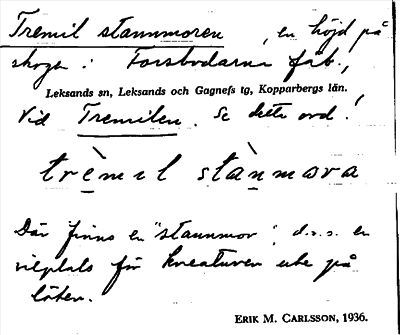 Tremil stannmoren, en höjd på
skogen i Forsbodarna fäb.,
Leksands sn, Leksands och Gagnefs tg, Kopparbergs län.
Vid Tremilen. Se detta ord!
trè̱mıl stàṉmωra
Där finns en "stannmor" d.v.s. en
vilplats för kreaturen ute på
löten.
ERIK M. CARLSSON, 1936.